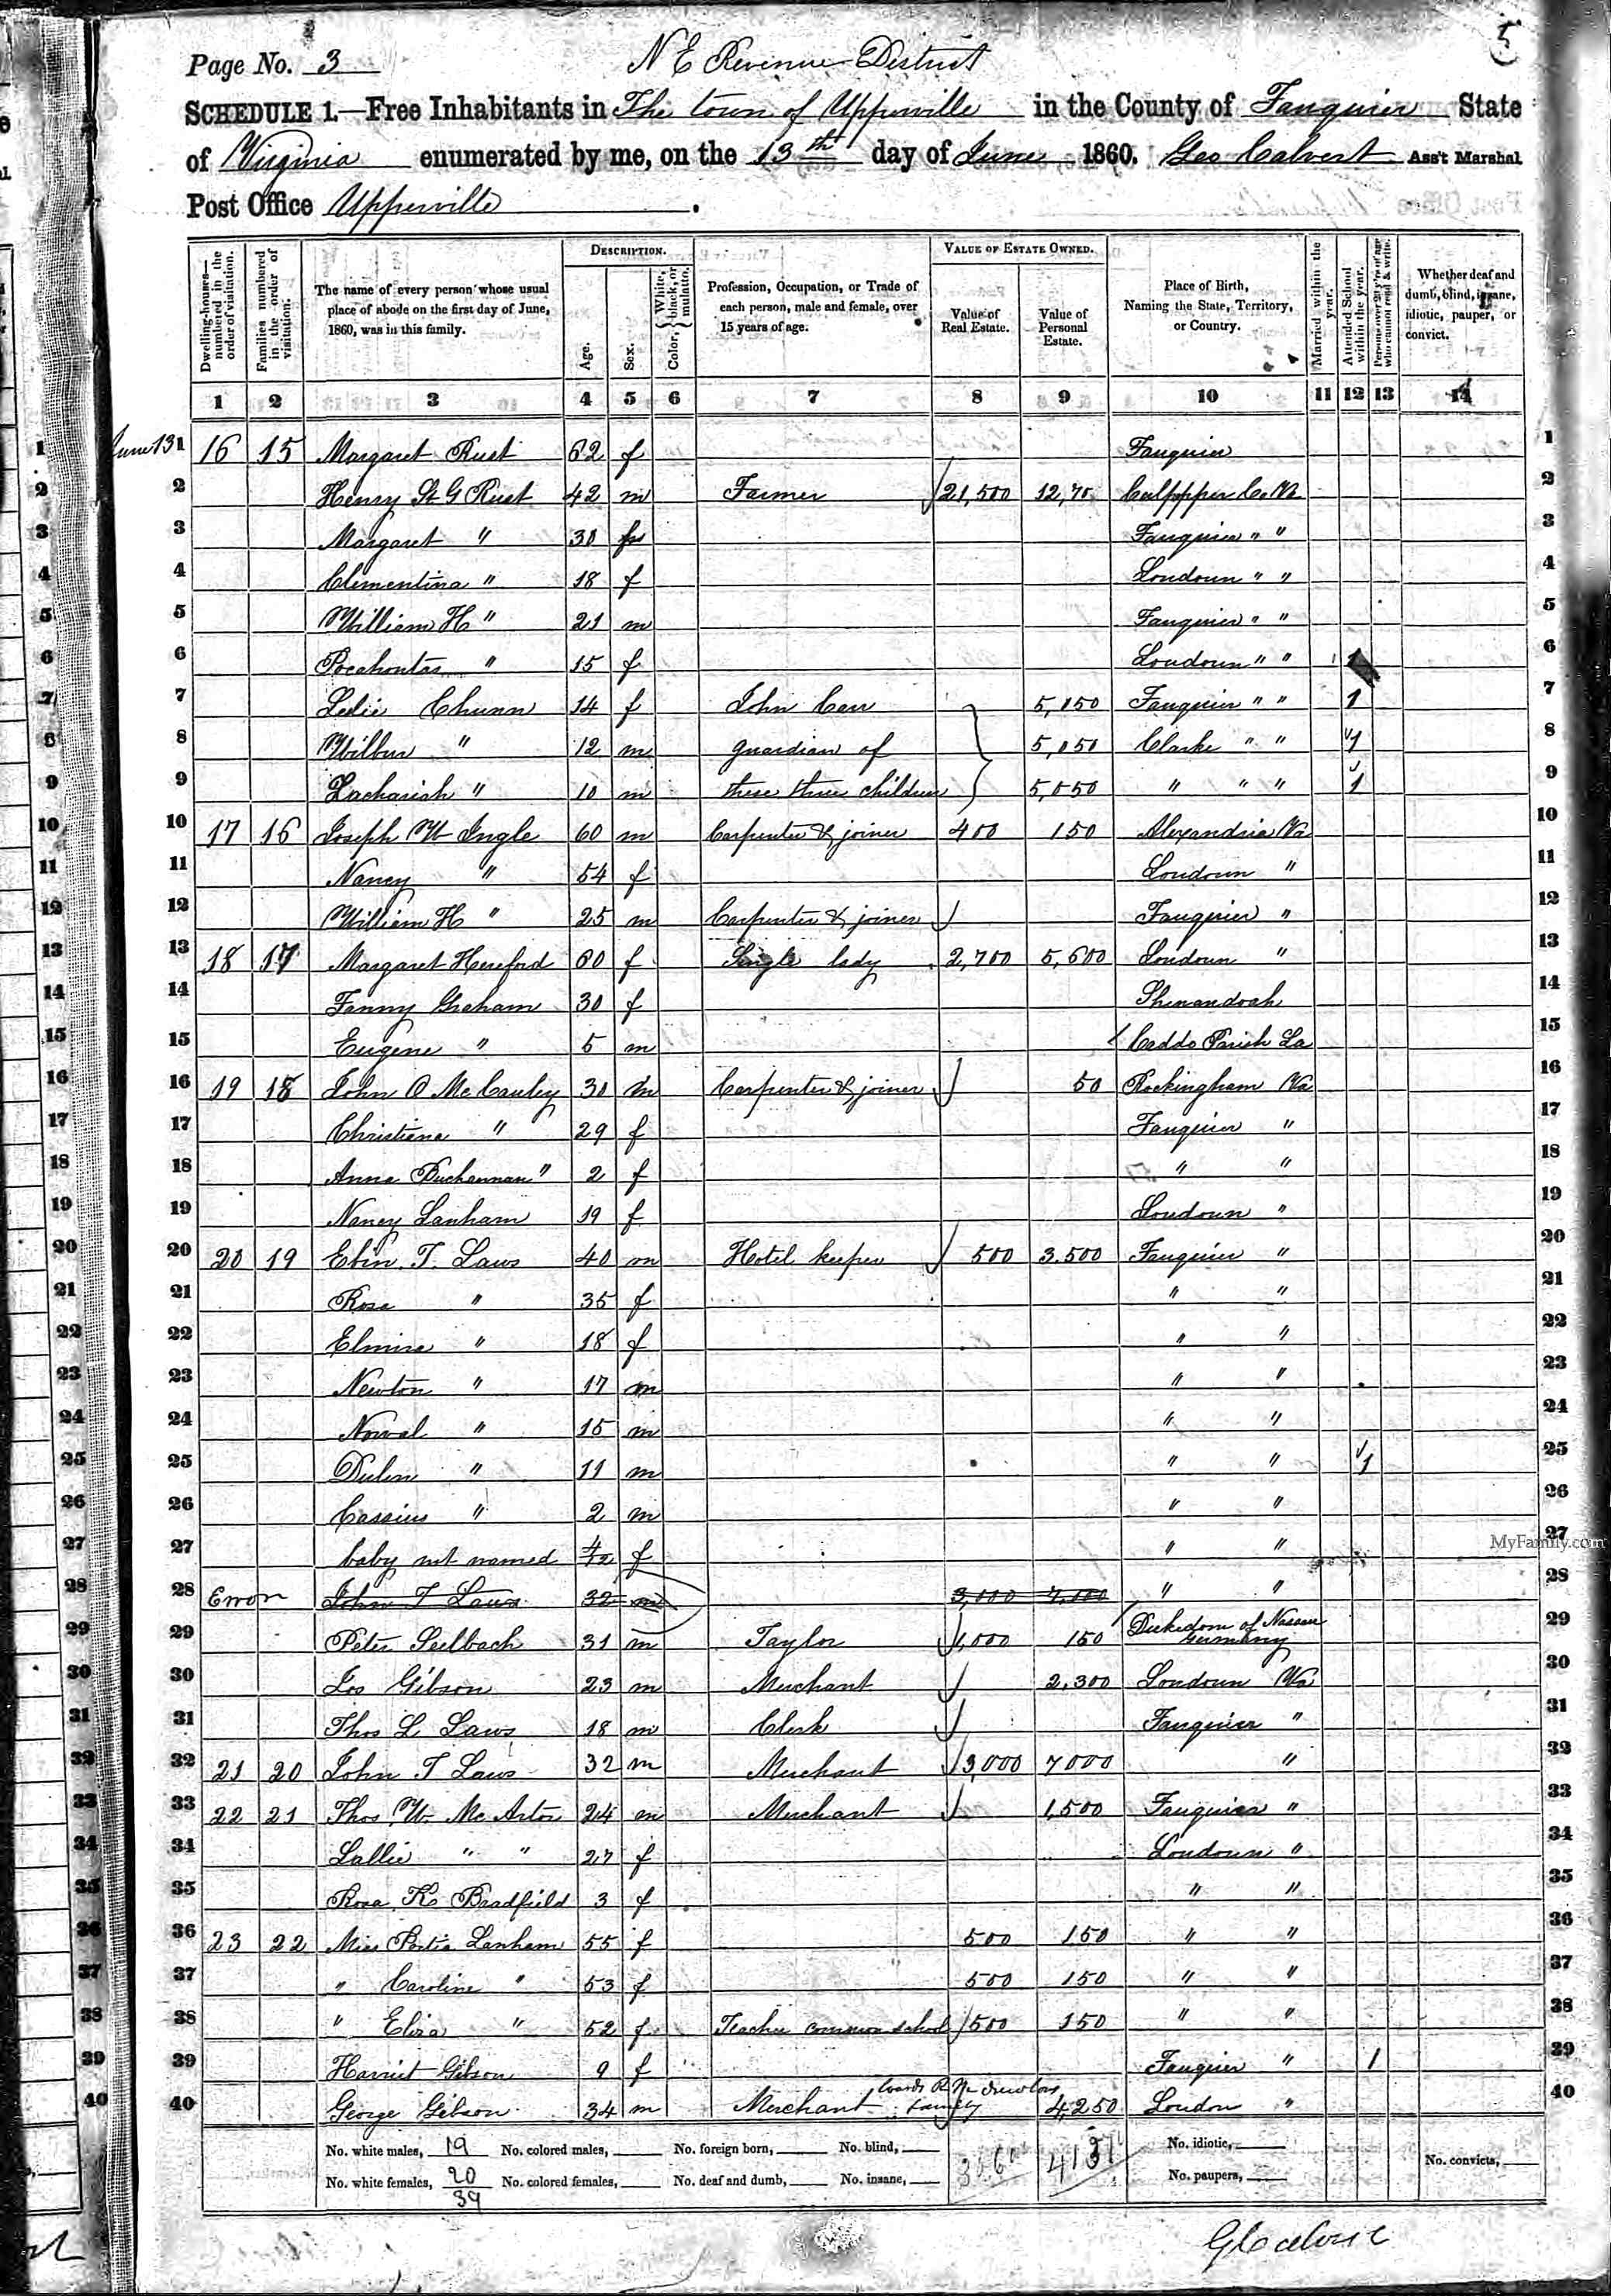 5
Page No. 3 N E Revenue District
SCHEDULE 1.—Free Inhabitants in The town of Upperville in the County of Fauquier State
of Virginia enumerated by me, on the 13th day of June 1860. Geo Calvert Ass't Marshal
Post Office Upperville.
Dwelling-houses—numbered in the order of visitation. Families numbered in the order of visitation. The name of every person whose usual place of abode on the first day of June, 1860, was in this family. DESCRIPTION. Age. Sex. Color, {White, black, or mulatto. Profession, Occupation, or Trade of each person, male and female, over 15 years of age. VALUE OF ESTATE OWNED. Value of Real Estate. Value of Personal Estate. Place of Birth, Naming the State, Territory, or Country. Married within the year. Attended School within the year. Persons over 20 y'rs of age who cannot read & write. Whether deaf and dumb, blind, insane, idiotic, pauper, or convict.
1 2 3 4 5 6 7 8 9 10 11 12 13 14
June 13 1 16 15 Margaret Rust 62 f Fauquier 1
2 Henry St G Rust 42 m Farmer 21,500 12,70 Culpepper Co Va 2
3 Margaret " 30 f Fauquier " " 3
4 Clementina " 18 f Loudoun " " 4
5 William H " 21 m Fauquier " " 5
6 Pocahontas " 15 f Loudoun " " 1 6
7 Leslie Chunn 14 f John Carr 5,150 Fauquier " " 1 7
8 Wilbur " 12 m guardian of 5,050 Clarke " " 1 8
9 Zachariah " 10 m these three children 5,050 " " " 1 9
10 17 16 Joseph W Ingle 60 m Carpenter & joiner 400 150 Alexandria Va 10
11 Nancy " 54 f Loudoun " 11
12 William H " 25 m Carpenter & joiner Fauquier " 12
13 18 17 Margaret Hereford 60 f Single lady 2,700 5,600 Loudoun " 13
14 Fanny Graham 30 f Shenandoah 14
15 Eugene " 5 m Caddo Parish La 15
16 19 18 John O McCauley 30 m Carpenter & joiner 50 Rockingham Va 16
17 Christiana " 29 f Fauquier " 17
18 Anna Buchannan " 2 f " " 18
19 Nancy Lanham 19 f Loudoun " 19
20 20 19 Ebin. T. Laws 40 m Hotel keeper 500 3.500 Fauquier " 20
21 Rosa " 35 f " " 21
22 Elmira " 18 f " " 22
23 Newton " 17 m " " 23
24 Norval " 15 m " " 24
25 Dulin " 11 m " " 1 25
26 Cassius " 2 m " " 26
27 baby not named 4/12 f " " 27
28 Error John T Laws 32 m 3,000 7,000 " " 28
29 Peter Seelbach 31 m Taylor 1,000 150 Dukedom of Nassau Germany 29
30 Jos Gibson 23 m Merchant 2,300 Loudoun Va 30
31 Thos L Laws 18 m Clerk Fauquier " 31
32 21 20 John T Laws 32 m Merchant 3,000 7000 " 32
33 22 21 Thos. W. McArtor 24 m Merchant 1,500 Fauquier " 33
34 Sallie " " 27 f Loudoun " 34
35 Rosa K Bradfield 3 f " " 35
36 23 22 Miss Portia Lanham 55 f 500 150 " " 36
37 " Caroline " 53 f 500 150 " " 37
38 " Eliza " 52 f Teacher common school 500 150 " " 38
39 Harriet Gibson 9 f Fauquier " 1 39
40 George Gibson 34 m Merchant family 4,250 Loudon " 40
No. white males, 19 No. colored males, No. foreign born, No. blind, No. idiotic,
No. white females, 20 No. colored females, No. deaf and dumb, No. insane, No. paupers, No. convicts,
39
MyFamily.com